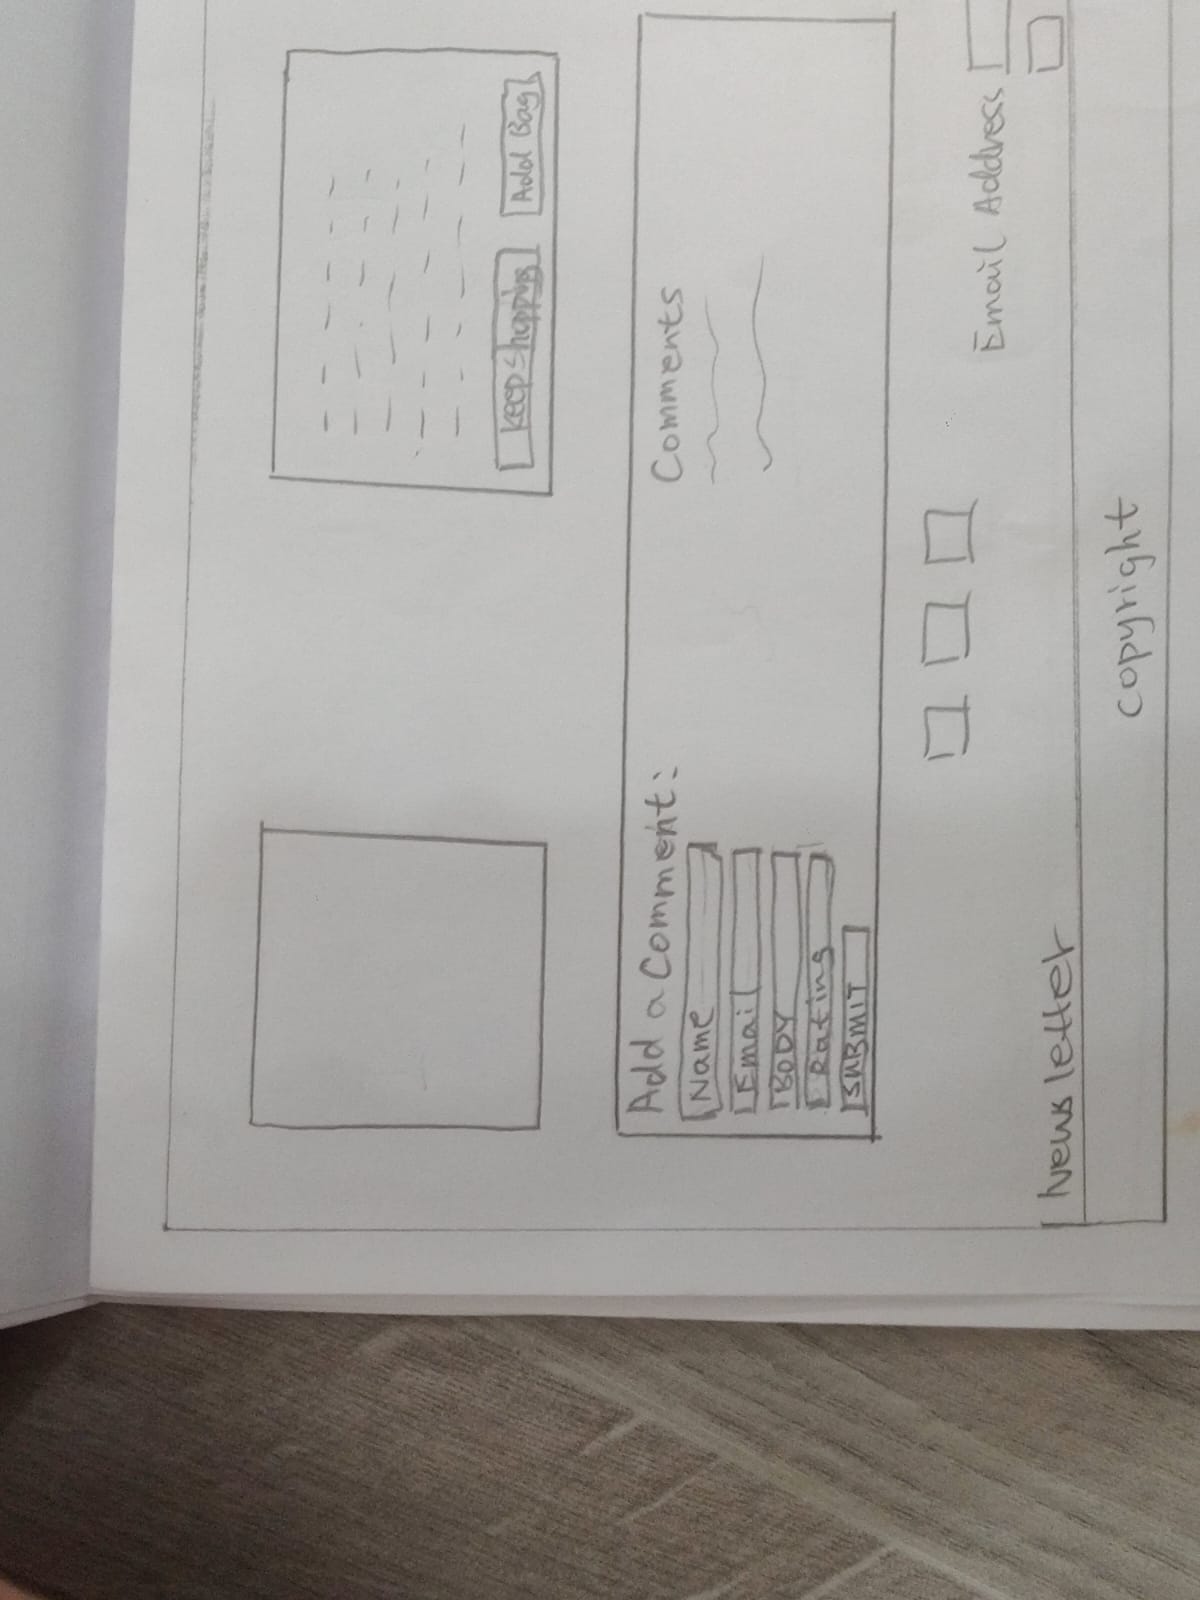 Keep shopping
Add Bag
Add a Comment:
Name
Email
BODY
Rating
SUBMIT
Comments
Email Address
Newsletter
copyright